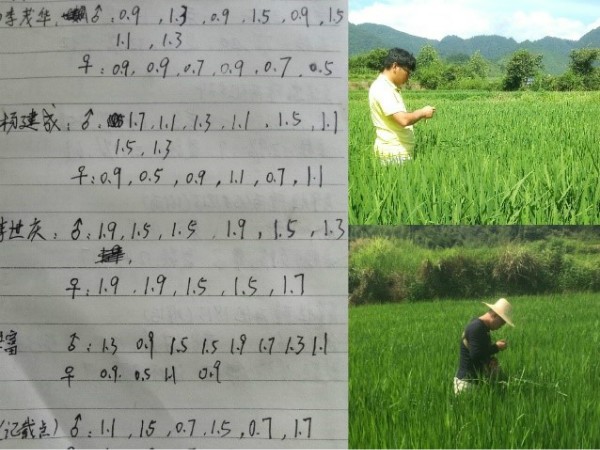 李茂华, ♂, 0.9, 1.3, 0.9, 1.5, 0.9, 1.5
1.1, 1.3
♀: 0.9, 0.9, 0.7, 0.9, 0.7, 0.5
杨建成: ♂: 1.7, 1.1, 1.3, 1.1, 1.5, 1.1
1.5, 1.3
♀: 0.9, 0.5, 0.9, 1.1, 0.7, 1.1
李世庆: ♂: 1.9, 1.5, 1.5, 1.9, 1.5, 1.3
♀: 1.9, 1.9, 1.5, 1.5, 1.7
富 ♂: 1.3 0.9 1.5 1.5 1.9 1.7 1.3 1.1
♀ 0.9 0.5 1.1 0.9
(记载点) ♂: 1.1, 1.5, 0.7, 1.5, 0.7, 1.7